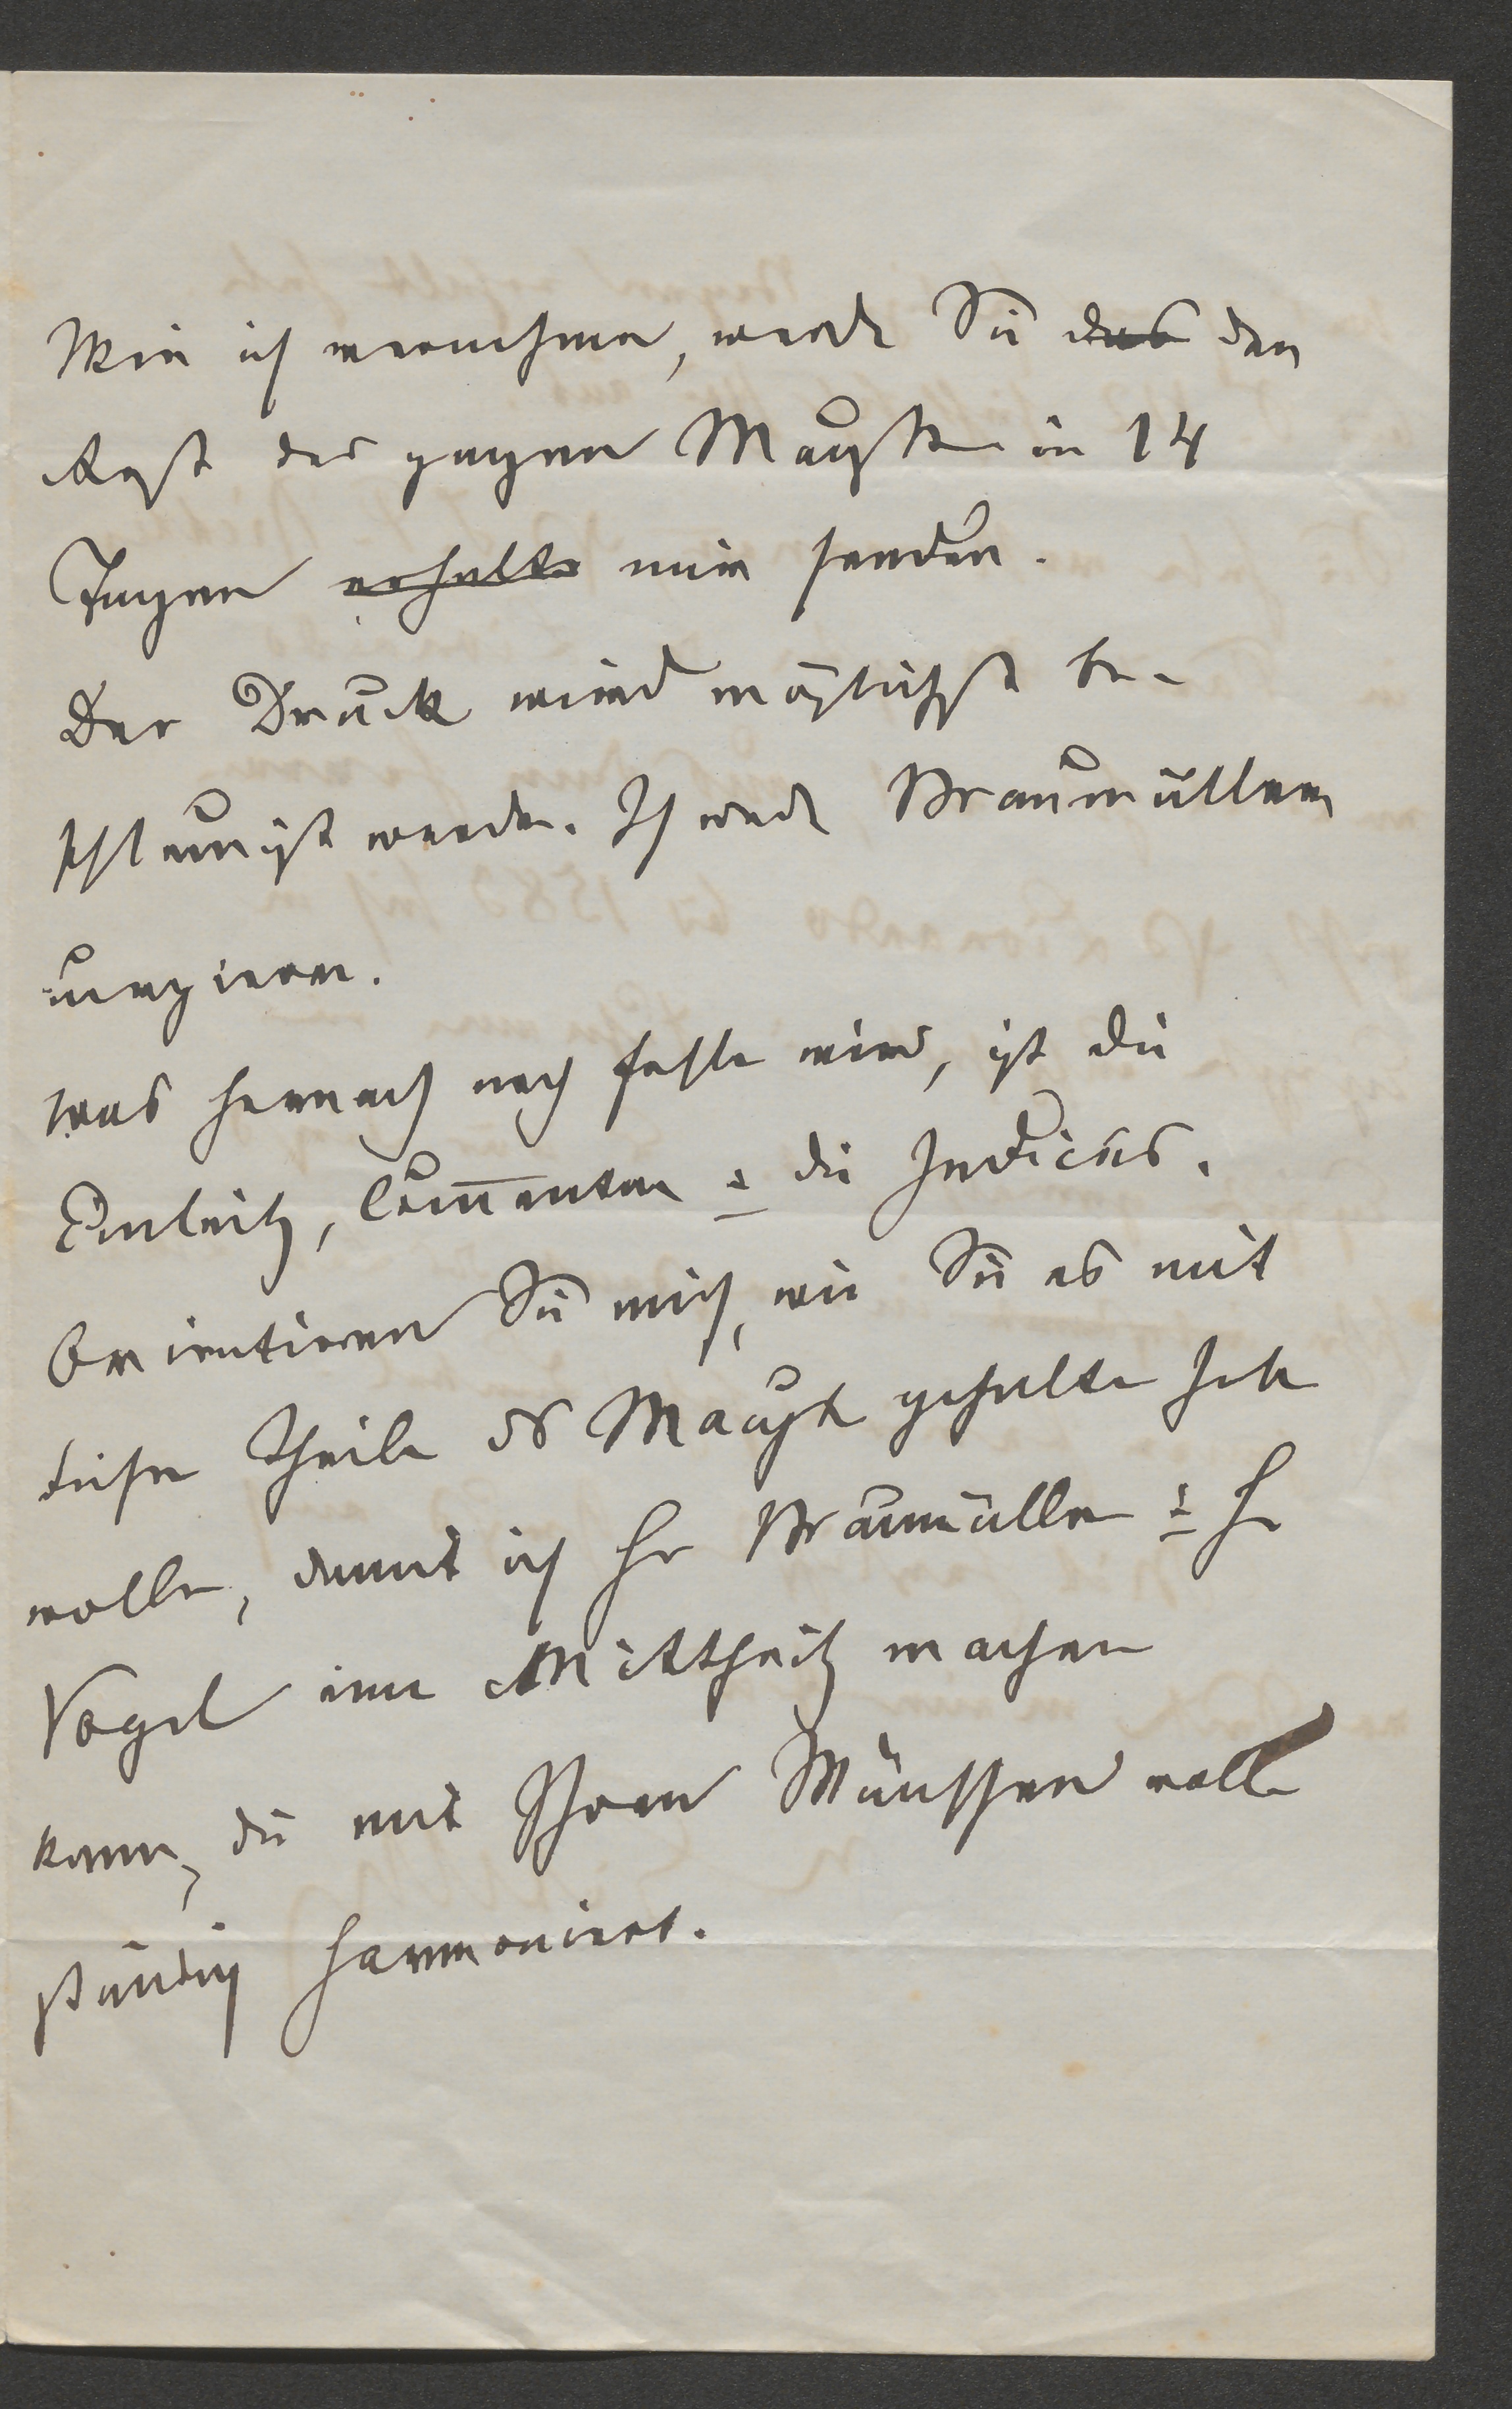 Wie ich vernehme, werde Sie das den
Rest des ganzen Mancpts in 14
Tagen erhalte mir senden.
Der Druck wird möglichst be-
schleunigt werden. Ich werde Braumüller
urgieren.
Was hernach noch fehle wird, ist die
Einleitg, Comentar & die Indices.
Orientieren Sie mich, wie Sie es mit
diese Theile des Mancpts gehalten habe
wolle, damit ich Hr Braumüller & Hr
Vogel eine Mittheilg machen
kann, die mit Ihren Wünschen voll
ständig harmoniert.